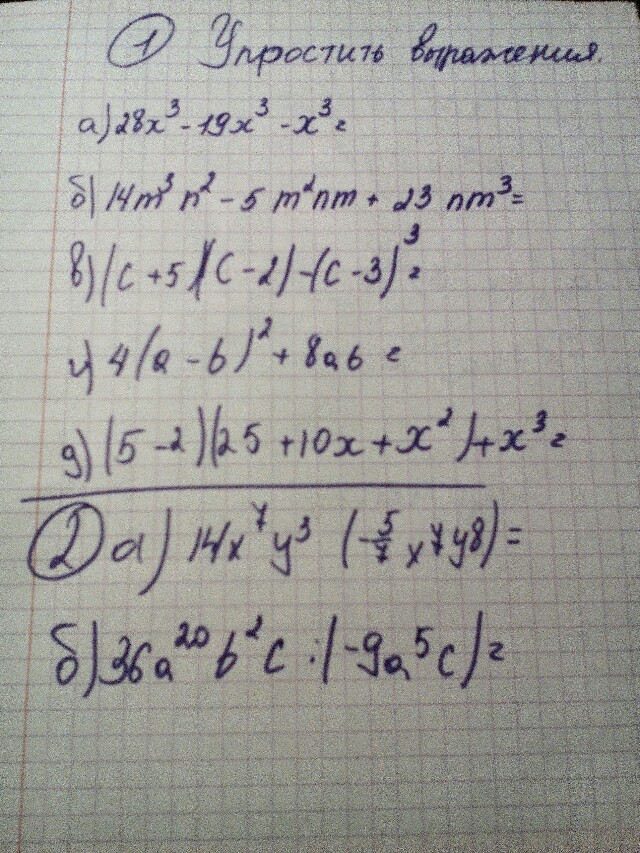 1 Упростить выражения.
а) 28x³ - 19x³ - x³ =
б) 14m³n² - 5m²nm + 23nm³ =
в) (c + 5)(c - 2) - (c - 3)³ =
г) 4(a - b)² + 8ab =
д) (5 - 2)(25 + 10x + x²) + x³ =
2 а) 14x⁷y³ (-5/7 x⁷y8) =
б) 36a²⁰b²c : (-9a⁵c) =